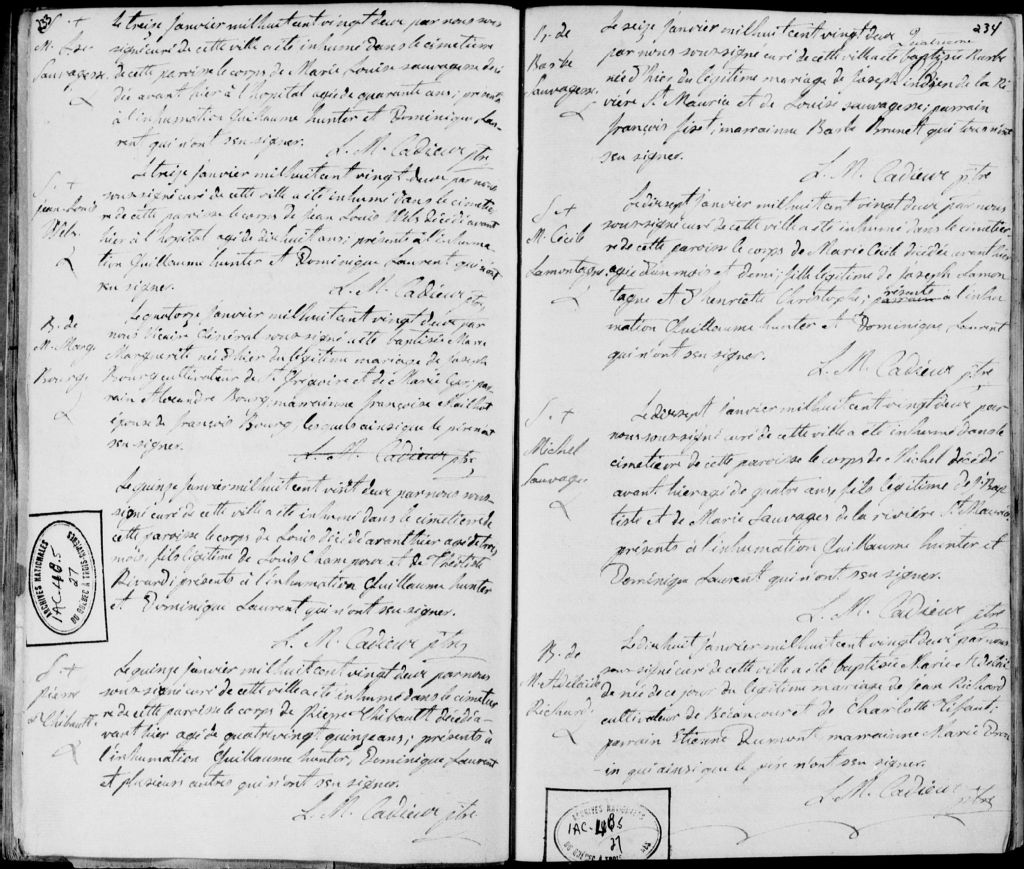 S. +
M. Lse
Sauvagesse
Le treize Janvier mil huit cent vingt deux par nous sous
signé curé de cette ville a été inhumé dans le cimetière
de cette paroisse le corps de Marie Louise sauvagesse décé
dée avant hier à l'hopital agée de quarante ans; présents
à l'inhumation Guillaume hunter et Dominique Lau-
rent, qui n'ont seu signer.
L. M. Cadieux ptre
S. +
jean-Louis
Le treize Janvier mil huit cent vingt deux par nous
sous signé curé de cette ville a été inhumé dans le cimetiè
re de cette paroisse le corps de Jean Louis décédé avant
hier à l'hopital agé de dix huit ans; présents à l'inhuma-
tion Guillaume hunter et Dominique Laurent qui n'ont
seu signer.
L. M. Cadieux ptre
B. de
M. Marg.
Bourg
Le quatorze Janvier mil huit cent vingt deux par
nous Vicaire Général sous signé a été baptisée Marie
Marguerite née d'hier du légitime mariage de Joseph
Bourg cultivateur de St. Grégoire et de Marie; par
rain Alexandre Bourg, marrainne françoise Mailhot
épouse de françois Bourg lesquels ainsi que le père n'ont
seu signer.
L. M. Cadieux ptre
Le quinze Janvier mil huit cent vingt deux par nous sous-
signé curé de cette ville a été inhumé dans le cimetiere de
cette paroisse le corps de Louis décédé avant hier agé de trois
mois, fils légitime de Louis Champoux et de Théotiste
Rivard; présents à l'inhumation Guillaume hunter
et Dominique Laurent qui n'ont seu signer.
L. M. Cadieux ptre
ARCHIVES NATIONALES
1AC-485
27
DU QUÉBEC À TROIS-RIVIÈRES
S. +
pierre
Thibault
Le quinze janvier mil huit cent vingt deux par nous
sous signé curé de cette ville a été inhumé dans le cimetiè
re de cette paroisse le corps de Pierre Thibault décédé a-
vant hier agé de quatre vingt quinze ans; présents à
l'inhumation Guillaume hunter, Dominique Laurent
et plusieurs autres qui n'ont seu signer.
L. M. Cadieux ptre
234
B. de
Barbe
Sauvagesse
Le seize Janvier mil huit cent vingt deux
par nous sous signé curé de cette ville a été baptisée Barbe
née d'hier du légitime mariage de Joseph indien de la Ri
vière St Maurice et de Louise sauvagesse; parrain
françois, marrainne Barbe Brunet qui tous n'ont
seu signer.
L. M. Cadieux ptre
S. +
M. Cécile
Lamontagne
Le dix sept Janvier mil huit cent vingt deux par nous
sous signé curé de cette ville a été inhumé dans le cimetiè
re de cette paroisse le corps de Marie Cécile décédée avant hier
agée d'un mois et demi; fille légitime de Joseph Lamon
tagne et d'henriette Christophe; présents à l'inhu
mation Guillaume hunter et Dominique Laurent
qui n'ont seu signer.
L. M. Cadieux ptre
S. +
Michel
Sauvage
Le dix sept Janvier mil huit cent vingt deux par
nous sous signé curé de cette ville a été inhumé dans le
cimetiere de cette paroisse le corps de Michel décédé
avant hier agé de quatre ans, fils légitime de J. Bap
tiste et de Marie Sauvages de la rivière St Maurice
présents à l'inhumation Guillaume hunter et
Dominique Laurent qui n'ont seu signer.
L. M. Cadieux ptre
B. de
M. Adelaïde
Richard
Le dix huit janvier mil huit cent vingt deux par nous
sous signé curé de cette ville a été baptisée Marie Adelaï
de née de ce jour du légitime mariage de Jean Richard
cultivateur de Bécancour et de Charlotte;
parrain Etienne Dumont marrainne Marie
qui ainsi que le père n'ont seu signer.
L. M. Cadieux
ptre
ARCHIVES NATIONALES
1AC-485
27
DU QUÉBEC À TROIS